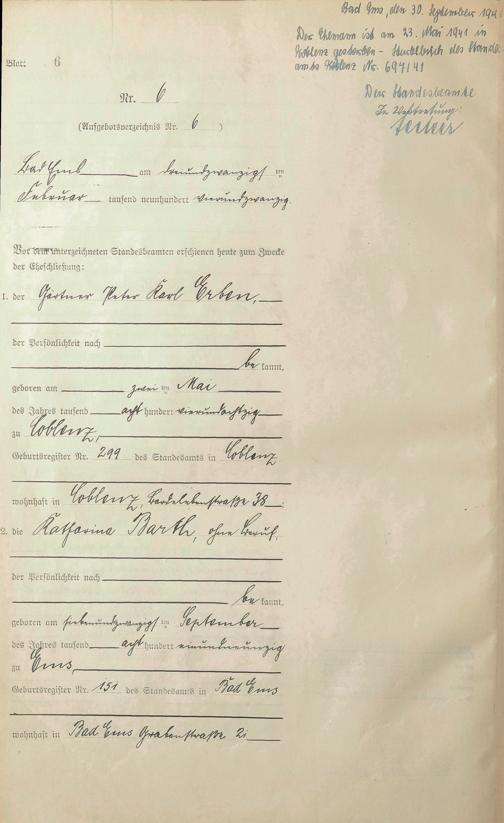 Bad Ems, den 30. September 194
Der Ehemann ist am 23. Mai 1941 in
Koblenz gestorben - Sterbebuch des Standes
amts Koblenz Nr. 697/41
Der Standesbeamte
In Vertretung:
Blatt 6
Nr. 6
(Aufgebotsverzeichnis Nr. 6 )
Bad Ems am dreiundzwanzigsten
Februar tausend neunhundert vierundzwanzig.
Vor dem unterzeichneten Standesbeamten erschienen heute zum Zwecke
der Eheschließung:
1. der Gärtner Peter Karl Erben,
der Persönlichkeit nach
be kannt,
geboren am zweiten Mai
des Jahres tausend acht hundert vierundachtzig
zu Coblenz,
Geburtsregister Nr. 299 des Standesamts in Coblenz
wohnhaft in Coblenz, Bardelebenstraße 38
2. die Katharina Barth, ohne Beruf,
der Persönlichkeit nach
be kannt,
geboren am siebenundzwanzigsten September
des Jahres tausend acht hundert einundneunzig
zu Ems,
Geburtsregister Nr. 151 des Standesamts in Bad Ems
wohnhaft in Bad Ems Grabenstraße 21